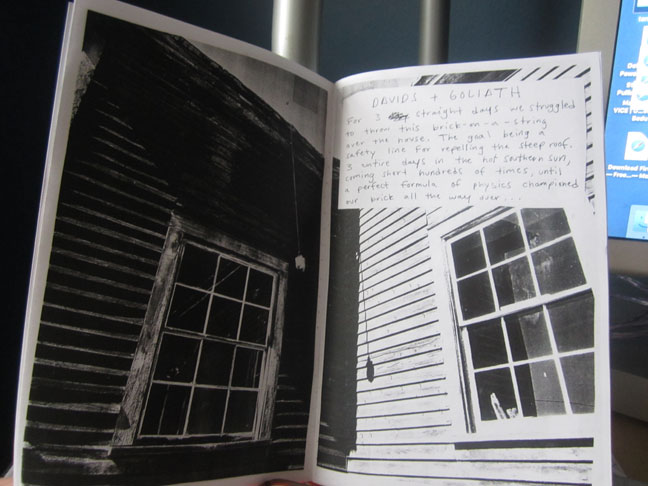 DAVIDS + GOLIATH
For 3 straight days we struggled
to throw this brick-on-a-string
over the house. The goal being a
safety line for repelling the steep roof.
3 entire days in the hot southern sun,
coming short hundreds of times, until
a perfect formula of physics championed
our brick all the way over...
VICE
Download Fir
Free...